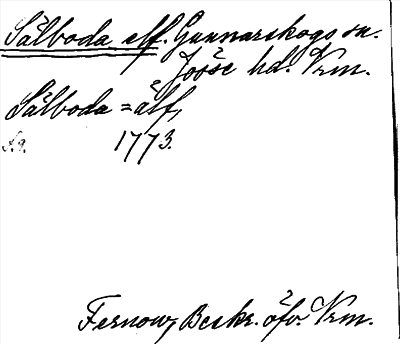 Sälboda elf. Gunnarskogs sn.
Jösse hd. Vrm.
Sälboda = älf,
1773.
Fernow, Beskr. öfv. Vrm.